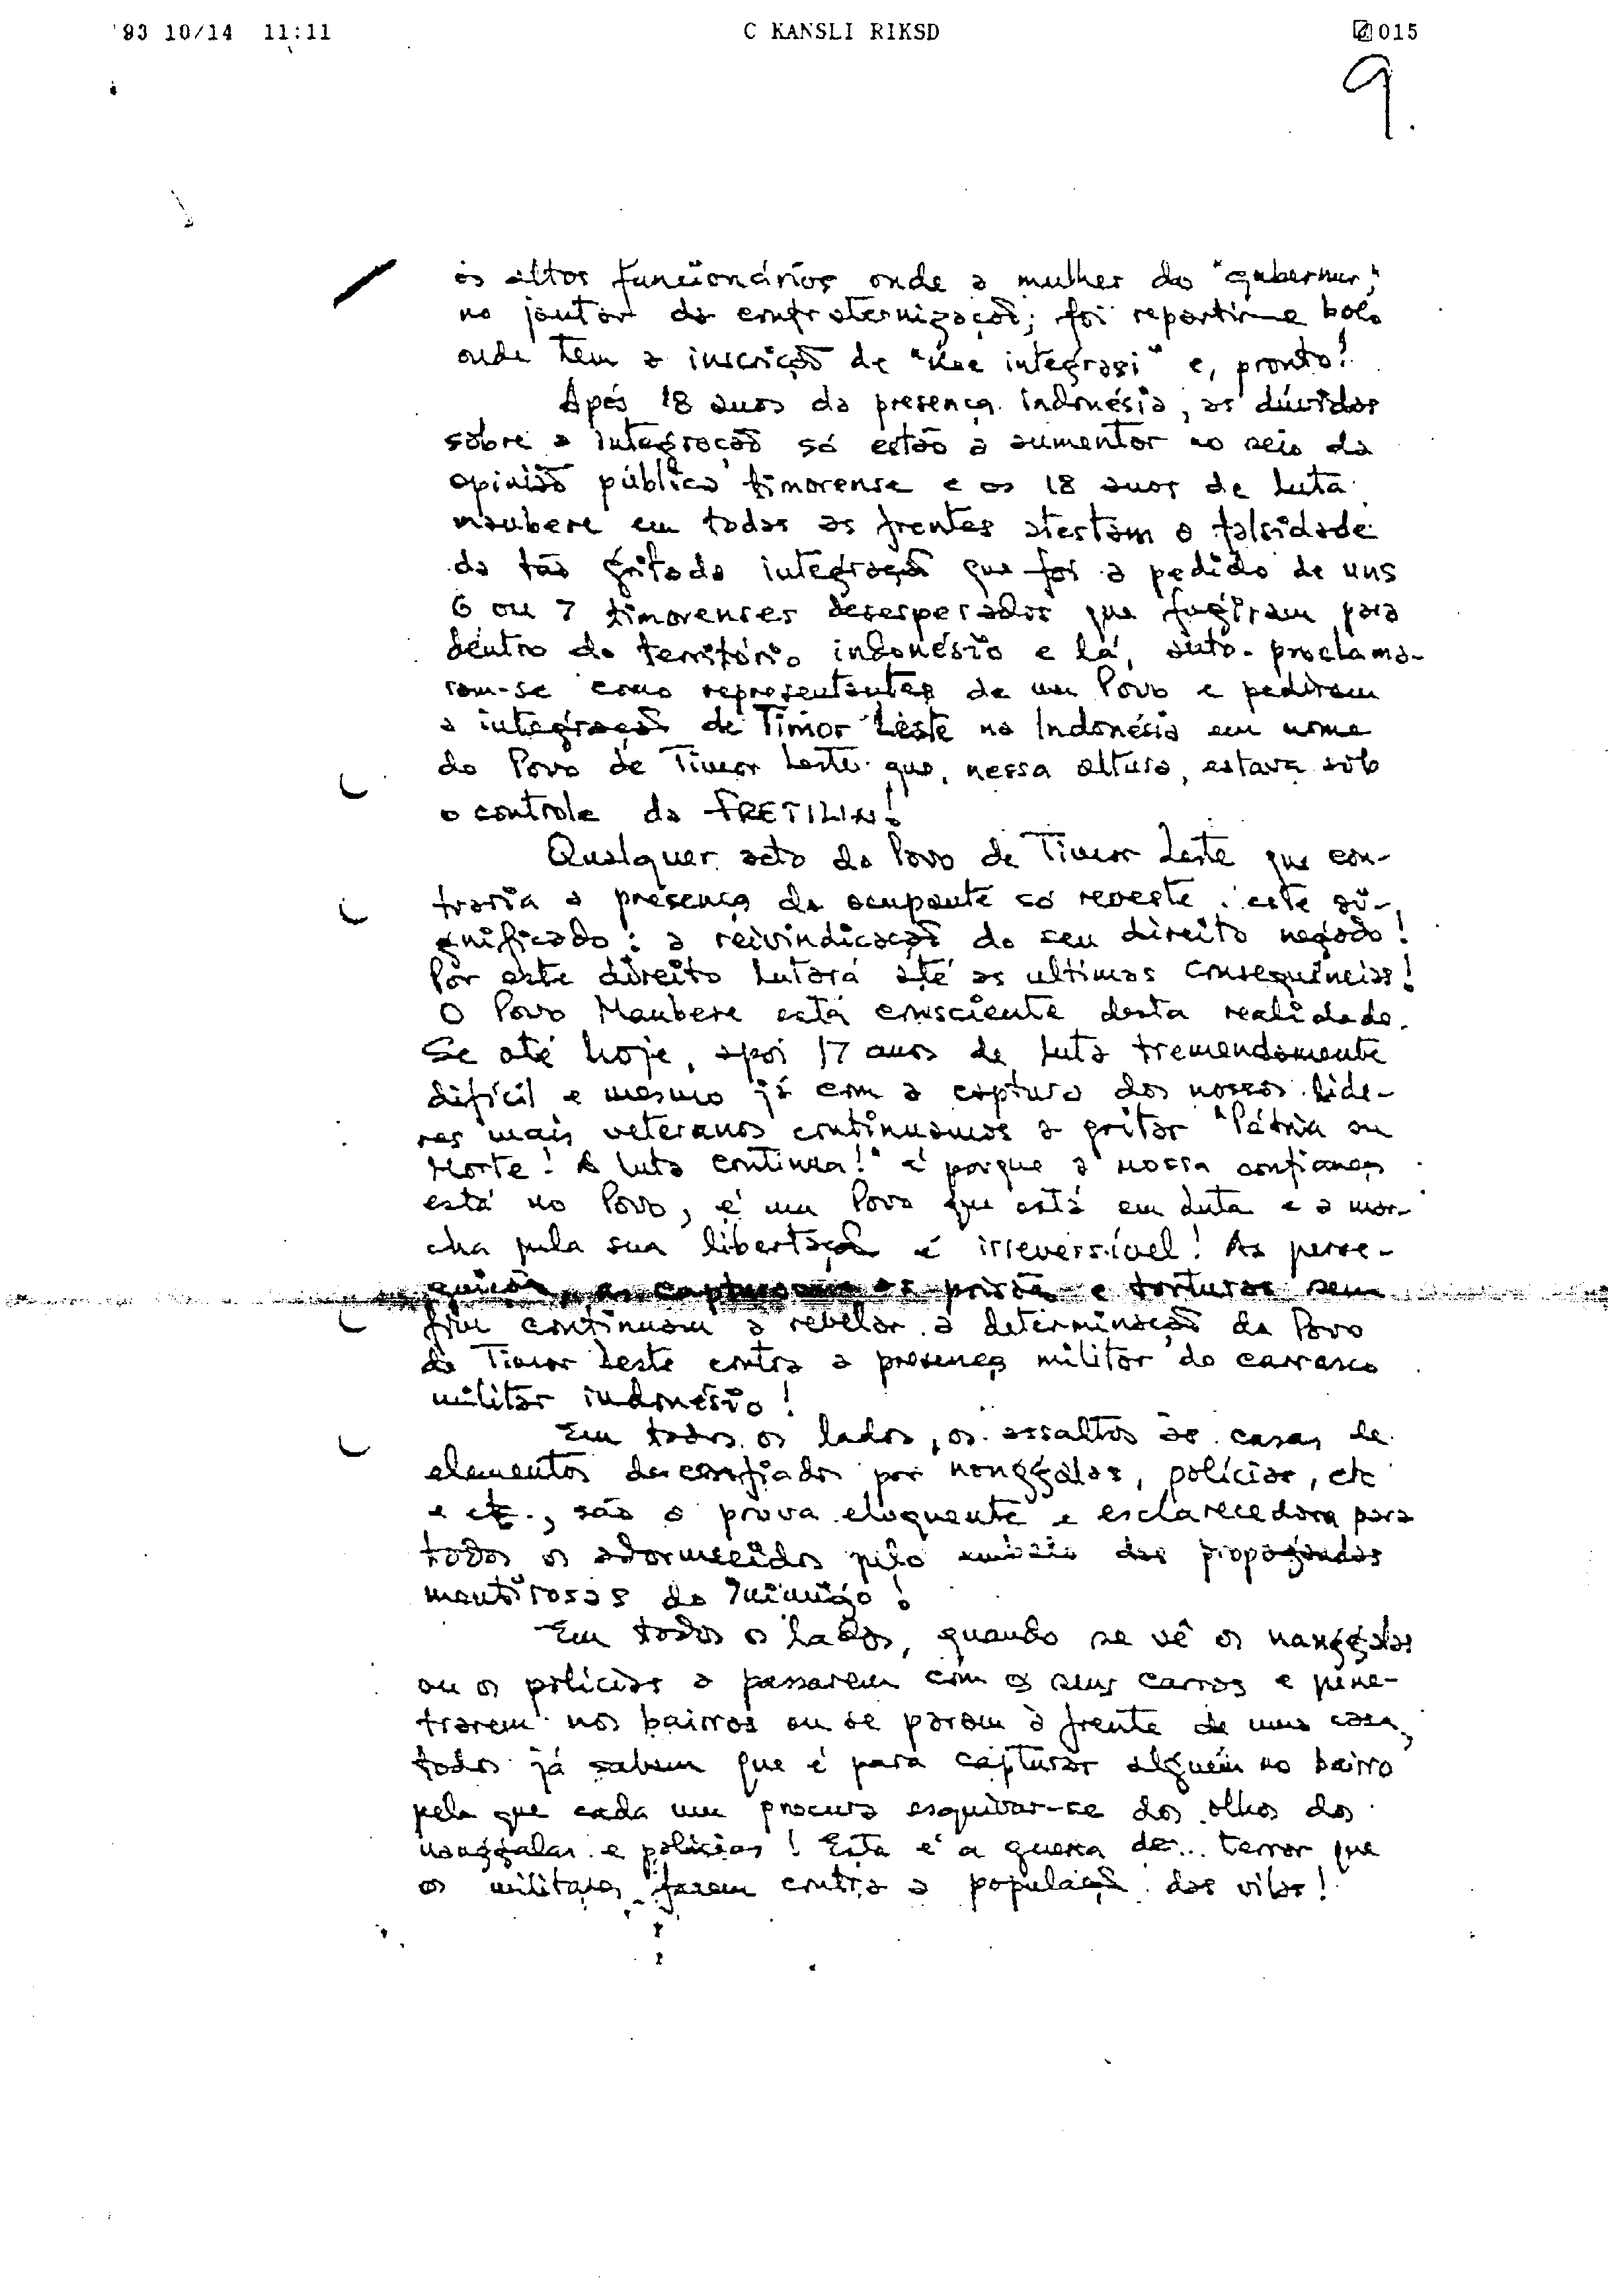 '93 10/14 11:11 C KANSLI RIKSD 015
9.
os altos funcionários onde a mulher do "gubernur,"
no jantar de confraternização; foi repartir-e bolo
onde tem a inscrição de "kue integrasi" e, pronto!
Após 18 anos da presença indonésia, as dúvidas
sôbre a integração só estão a aumentar no seio da
opinião pública timorense e os 18 anos de Luta
maubere em todas as frentes atestam a falsidade
da tão gritada integração que foi a pedido de uns
6 ou 7 timorenses desesperados que fugiram para
dentro do território indonésio e lá, auto-proclama-
ram-se como representantes de um Povo e pediram
a integração de Timor Leste na Indonésia em nome
do Povo de Timor Leste que, nessa altura, estava sob
o controle da FRETILIN!
Qualquer acto do Povo de Timor Leste que con-
traria a presença do ocupante só reveste este si-
gnificado: a reivindicação do seu direito negado!
Por este direito Lutará até as ultimas consequências!
O Povo Maubere está consciente desta realidade.
Se até hoje, após 17 anos de Luta tremendamente
difícil e mesmo já com a captura dos nossos líde-
res mais veteranos continuamos a gritar "Pátria ou
Morte! A luta continua!" é porque a nossa confiança
está no Povo, é um Povo que está em Luta e a mar-
cha pela sua libertação é irreversível! As perse-
guições, as capturas as prisões e torturas sem
fim continuam a revelar a determinação do Povo
de Timor Leste contra a presença militar do carrasco
militar indonésio!
Em todos os lados, os assaltos às casas de
elementos desconfiados por nanggalas, polícias, etc
e etc., são a prova eloquente e esclarecedora para
todos os adormecidos pelo das propagandas
mentirosas do Inimigo!
Em todos os lados, quando se vê os nanggalas
ou os polícias a passarem com os seus carros e pene-
trarem nos bairros ou se param à frente de uma casa,
todos já sabem que é para capturar alguém no bairro
pelo que cada um procura esquivar-se dos olhos dos
nanggalas e polícias! Esta é a guerra de... terror que
os militares fazem contra a população das vilas!